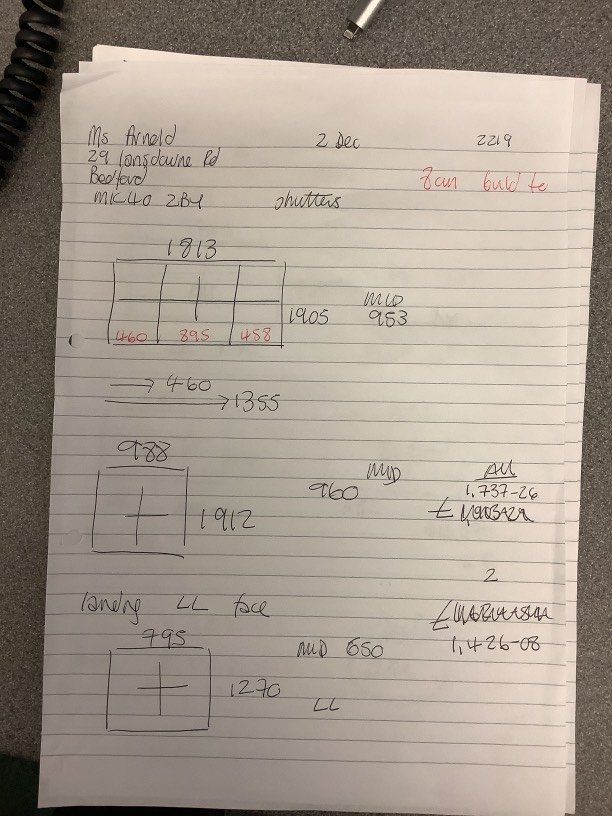 Ms Arnold 2 Dec 2219
29 lansdowne Rd
Bedford
MK40 2BY shutters
1813
1905 MID
953
460 895 458
→ 460
→ 1355
988
MID
960
1912
All
1,737-26
£
2
landing LL face
£
1,426-08
795
MID 650
1270
LL